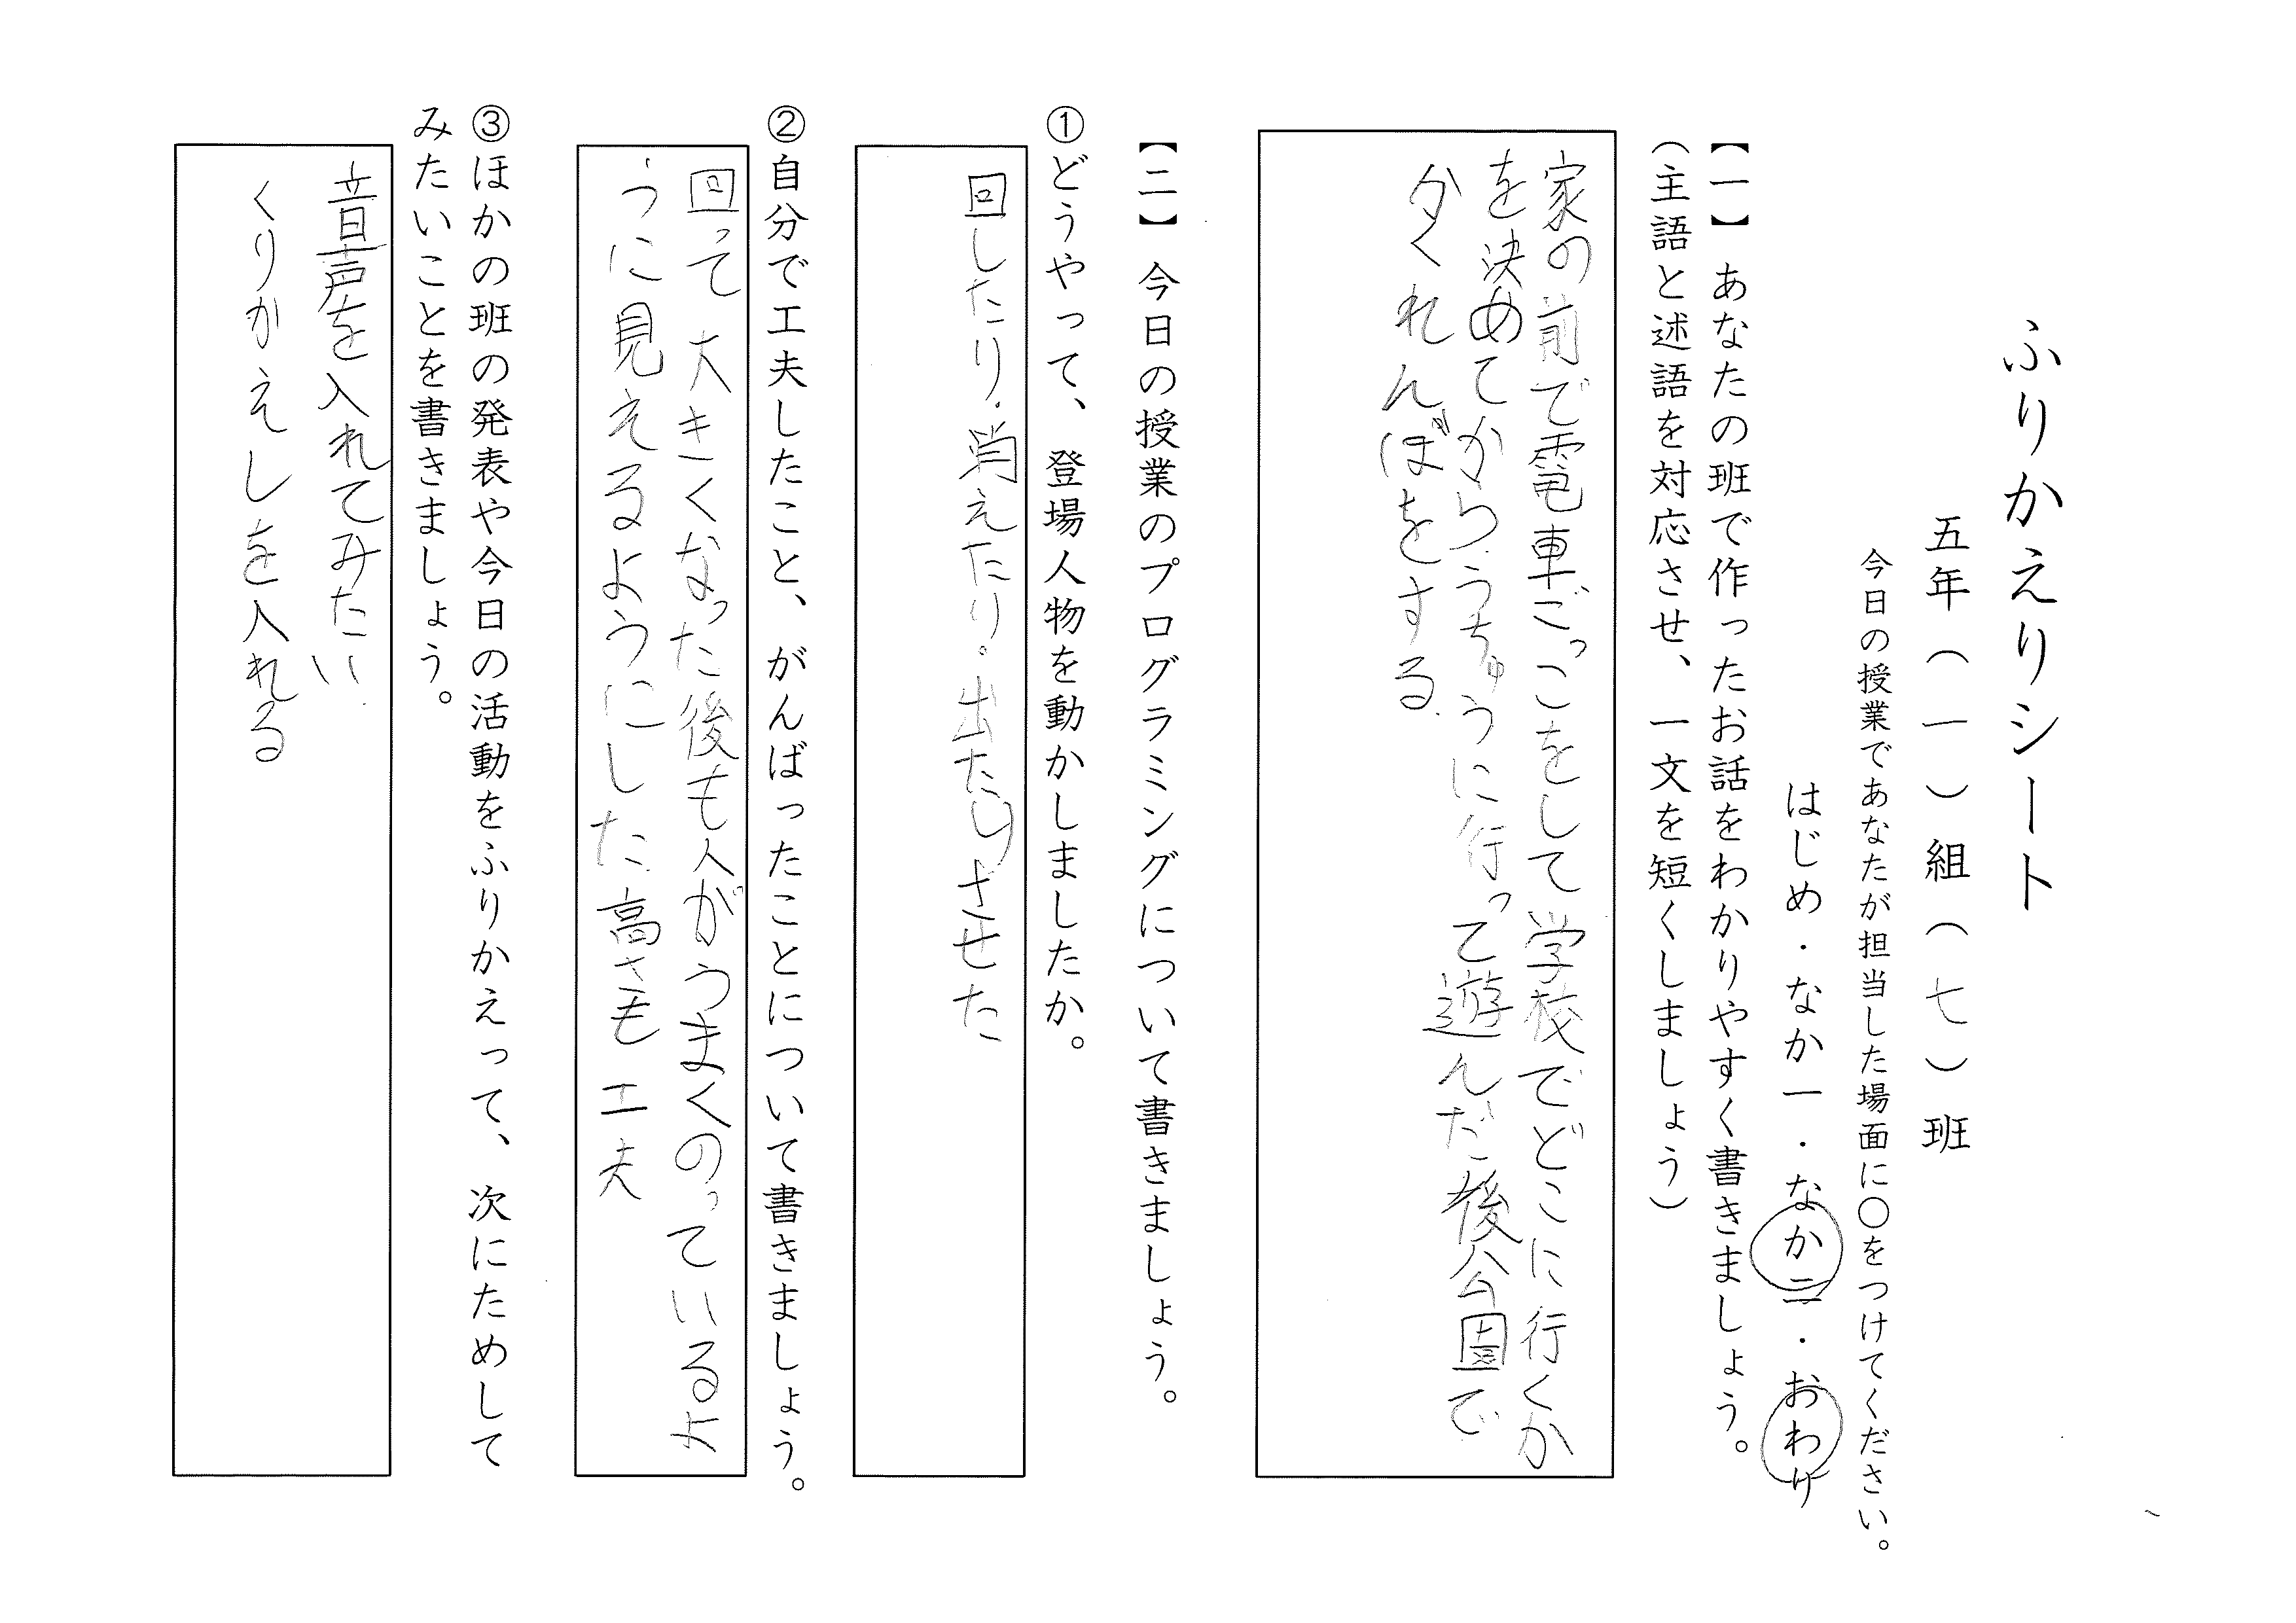 ふりかえりシート
五年（一）組（七）班
今日の授業であなたが担当した場面に〇をつけてください。
はじめ・なか一・なか二・おわり
【一】あなたの班で作ったお話をわかりやすく書きましょう。
（主語と述語を対応させ、一文を短くしましょう）
家の前で電車ごっこをして学校でどこに行くか
を決めてからうちゅうに行って遊んだ後公園で
かくれんぼをする.
【二】今日の授業のプログラミングについて書きましょう。
①どうやって、登場人物を動かしましたか。
回したり.消えたり.出たりさせた
②自分で工夫したこと、がんばったことについて書きましょう。
回って大きくなった後も人がうまくのっているよ
うに見えるようにした高さも工夫
③ほかの班の発表や今日の活動をふりかえって、次にためして
みたいことを書きましょう。
音声を入れてみたい.
くりかえしを入れる